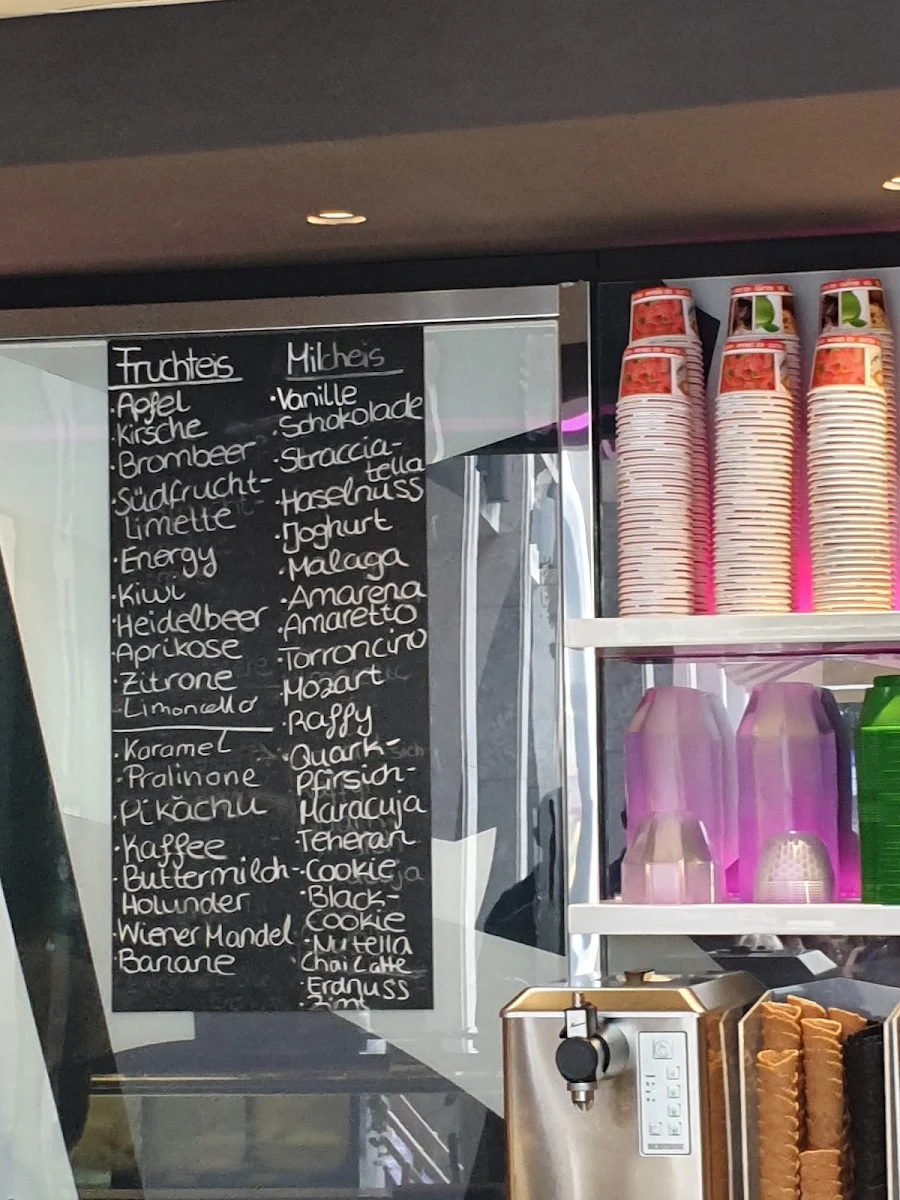 Fruchteis
·Apfel
·Kirsche
·Brombeer
·Südfrucht-
Limette
·Energy
·Kiwi
·Heidelbeer
·Aprikose
·Zitrone
·Limoncello
·Karamel
·Pralinone
·Pikachu
·Kaffee
·Buttermilch-
Holunder
·Wiener Mandel
·Banane
Milcheis
·Vanille
·Schokolade
·Straccia-
tella
·Haselnuss
·Joghurt
·Malaga
·Amarena
·Amaretto
·Torroncino
·Mozart
·Raffy
·Quark-
Pfirsich-
Maracuja
·Teheran
·Cookie
·Black-
Cookie
·Nutella
·Chai Latte
·Erdnuss
·Zimt